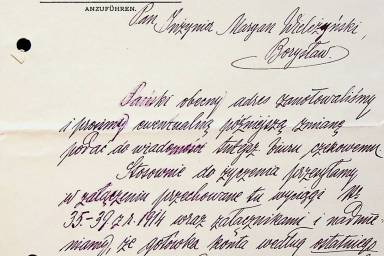 ANZUFÜHREN.
Pan Inżynier Maryan Wieleżyński,
Borysław.
Pański obecny adres zanotowaliśmy
i prosimy ewentualną późniejszą zmianę
podać do wiadomości biuru czekowemu.
Stosownie do życzenia przesyłamy
w załączeniu przechowane tu wyciągi Nr.
35-39 z r. 1914 wraz załącznikami i nadmie-
niamy, że gotówka konta według ostatniego